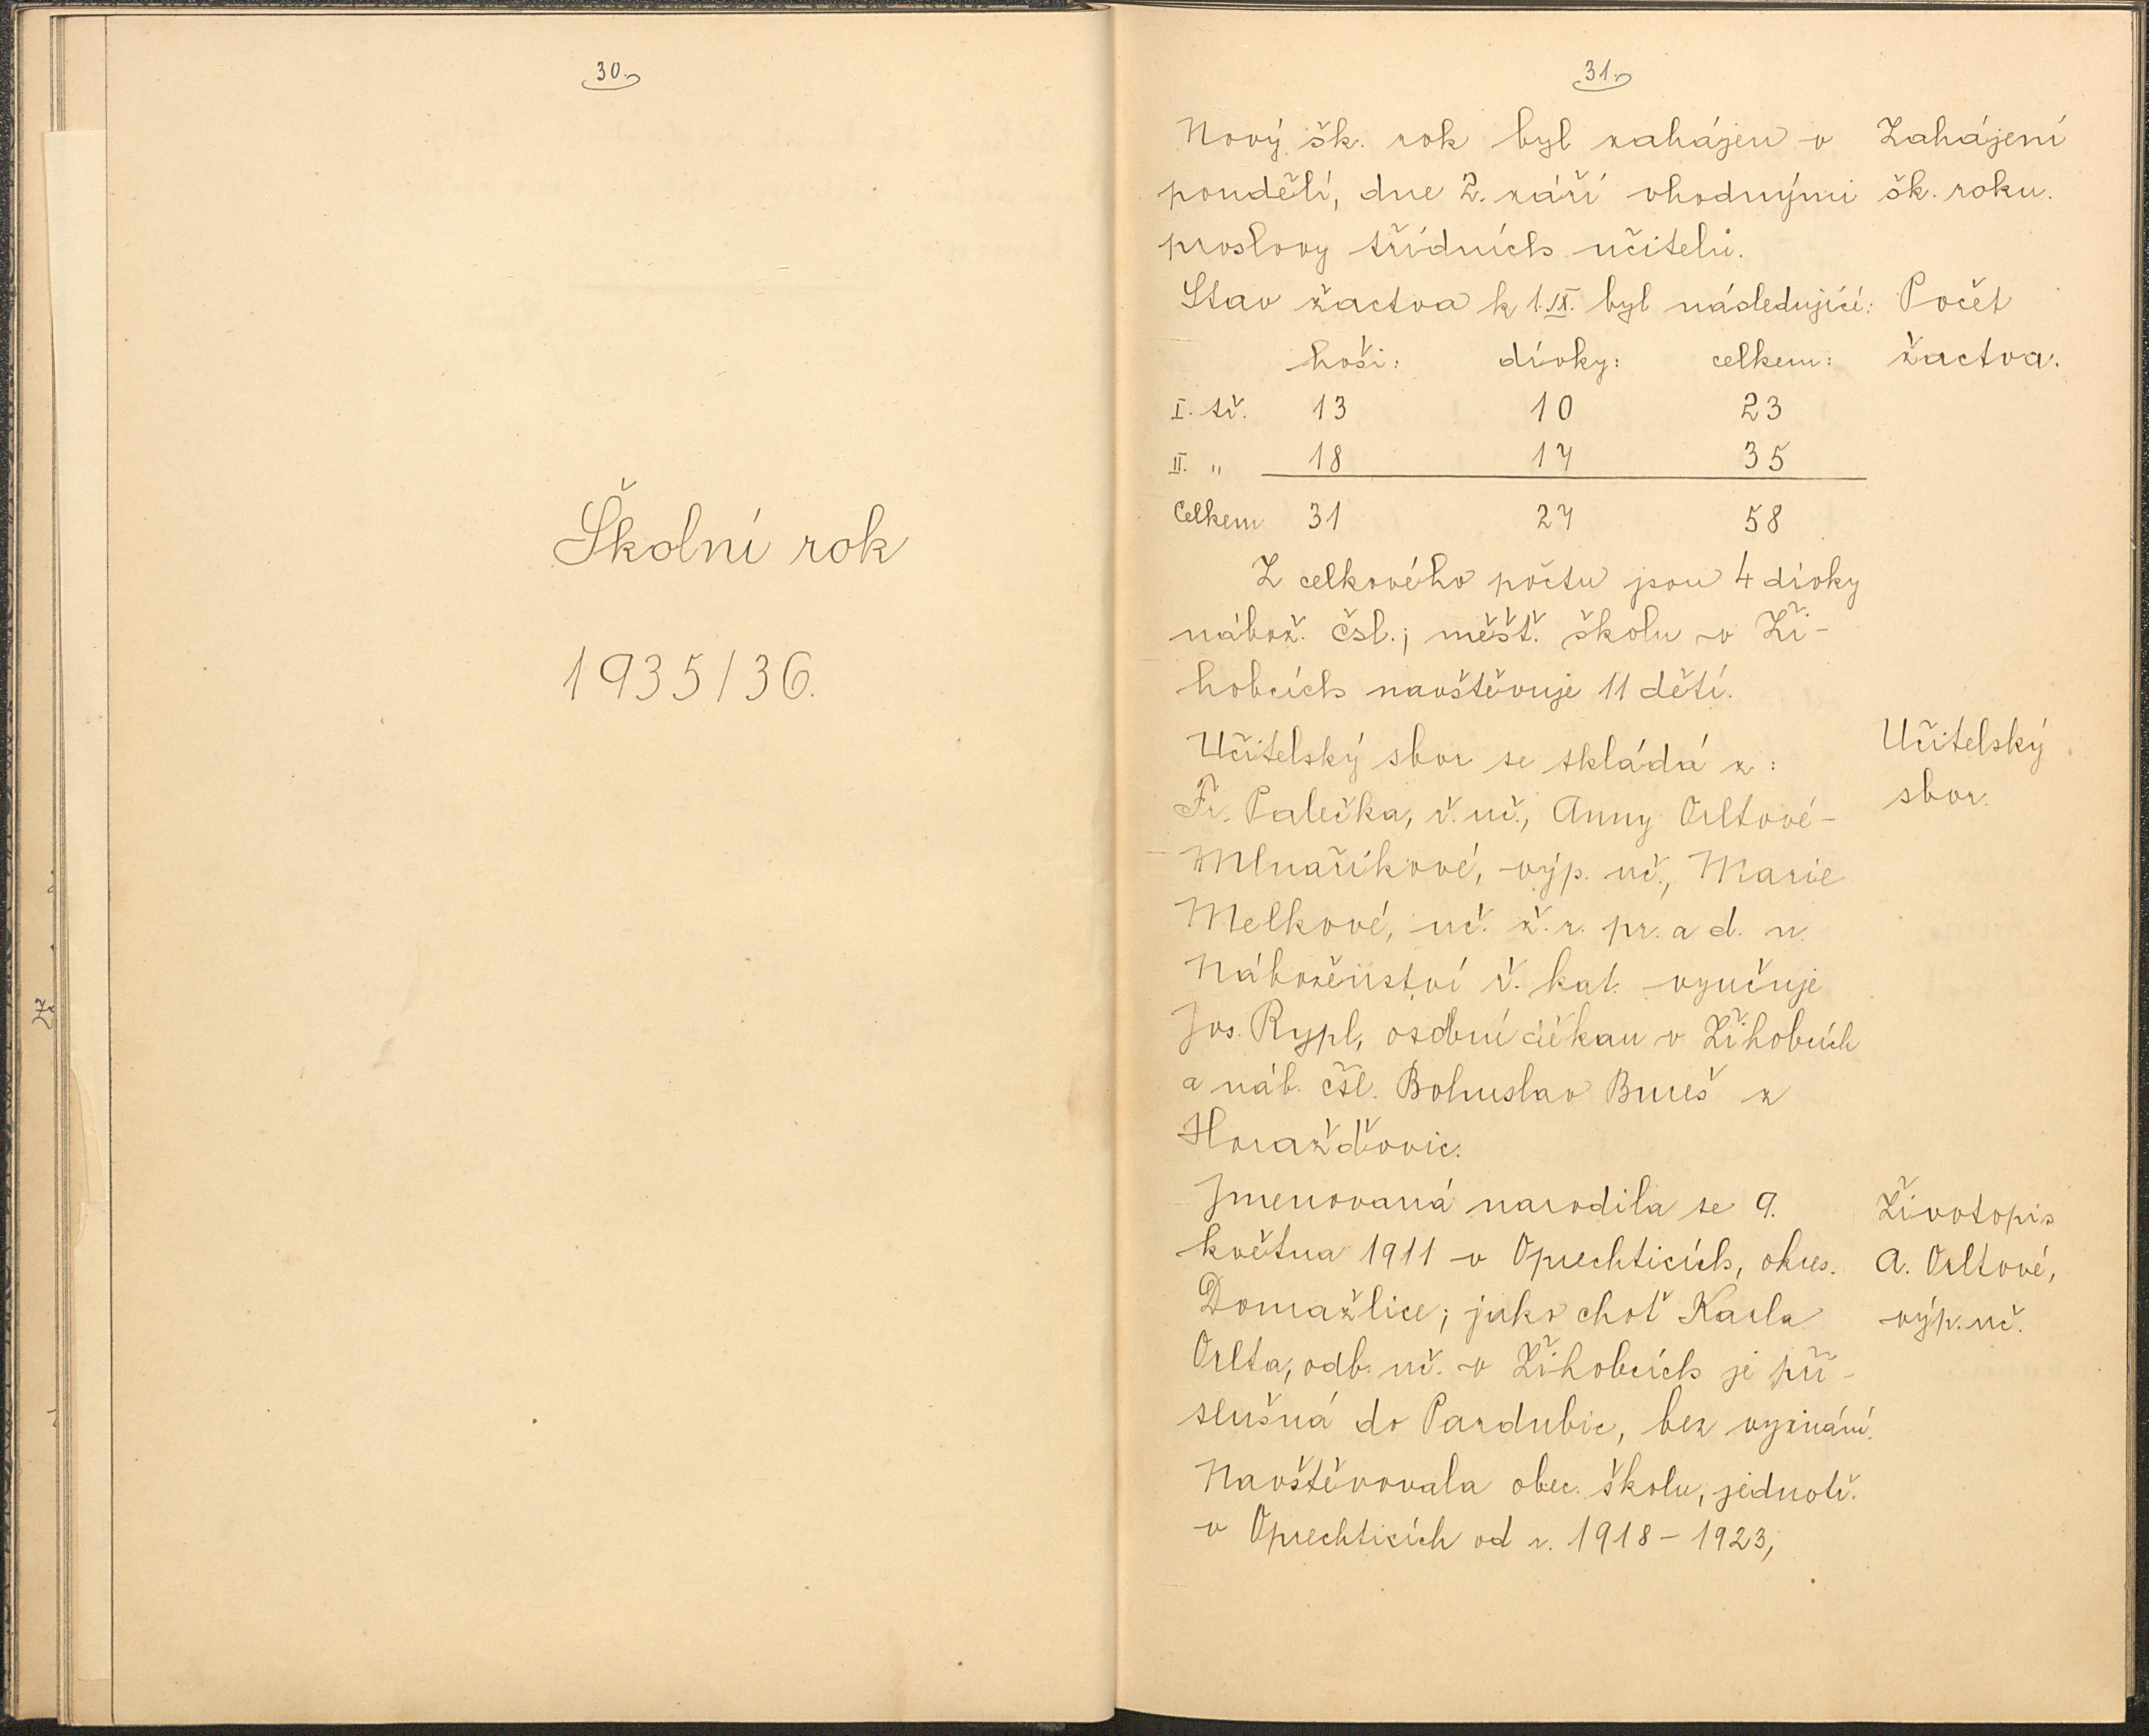 30.
Školní rok
1935/36.
31.
Nový šk. rok byl zahájen v
pondělí, dne 2. září vhodnými
proslovy třídních učitelů.
Zahájení
šk. roku.
Stav žactva k 1.IX. byl následující:
Počet
žactva.
hoši: dívky: celkem:
I. tř. 13 10 23
II. " 18 17 35
Celkem 31 27 58
Z celkového počtu jsou 4 dívky
nábož. čsl.; měšť. školu v Ži-
hobcích navštěvuje 11 dětí.
Učitelský sbor se skládá z:
Fr. Palečka, ř. uč., Anny Orltové-
Mlnaříkové, výp. uč., Marie
Melkové, uč. ž. r. pr. a d. n.
Učitelský
sbor.
Náboženství ř. kat. vyučuje
Jos. Rypl, osobní děkan v Žihobcích
a náb. čsl. Bohuslav Bureš z
Horažďovic.
Jmenovaná narodila se 9.
května 1911 v Oprechticích, okres.
Domažlice; jako choť Karla
Orlta, odb. uč. v Žihobcích je pří-
slušná do Pardubic, bez vyznání.
Navštěvovala obec. školu, jednotř.
v Oprechticích od r. 1918-1923,
Životopis
A. Orltové,
výp. uč.
27